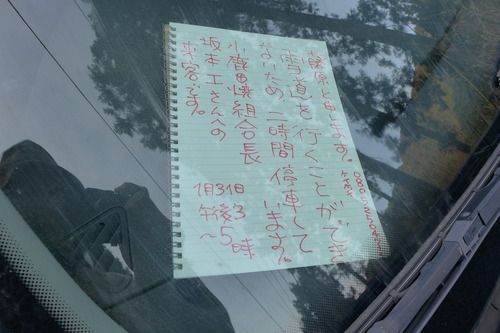 藤原と申します。
雪道を行くことができ
ないため 二時間停車して
います。
小鹿田焼組合長
坂本工さんへの
来客です。
1月31日
午後3
〜5時